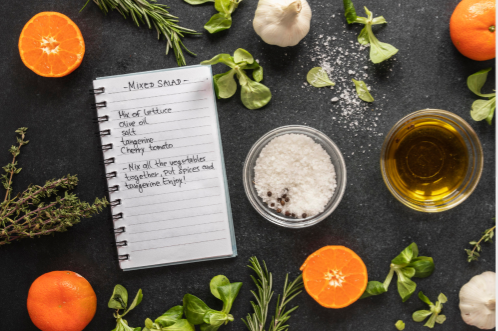 -Mixed Salad-
Mix of lettuce
Olive oil
salt
tangerine
Cherry tomato
-Mix all the vegetables
together, put spices and
tangerine. Enjoy!